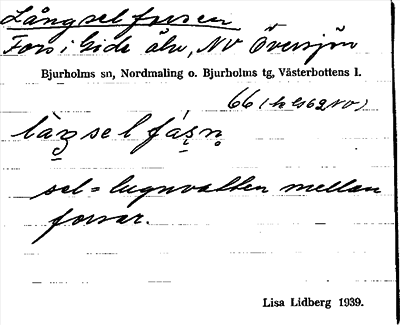 Långselforsen
Fors i Gide älv, NV Översjön
Bjurholms sn, Nordmaling o. Bjurholms tg, Västerbottens l.
66
sel = lugnvatten mellan
forsar.
Lisa Lidberg 1939.